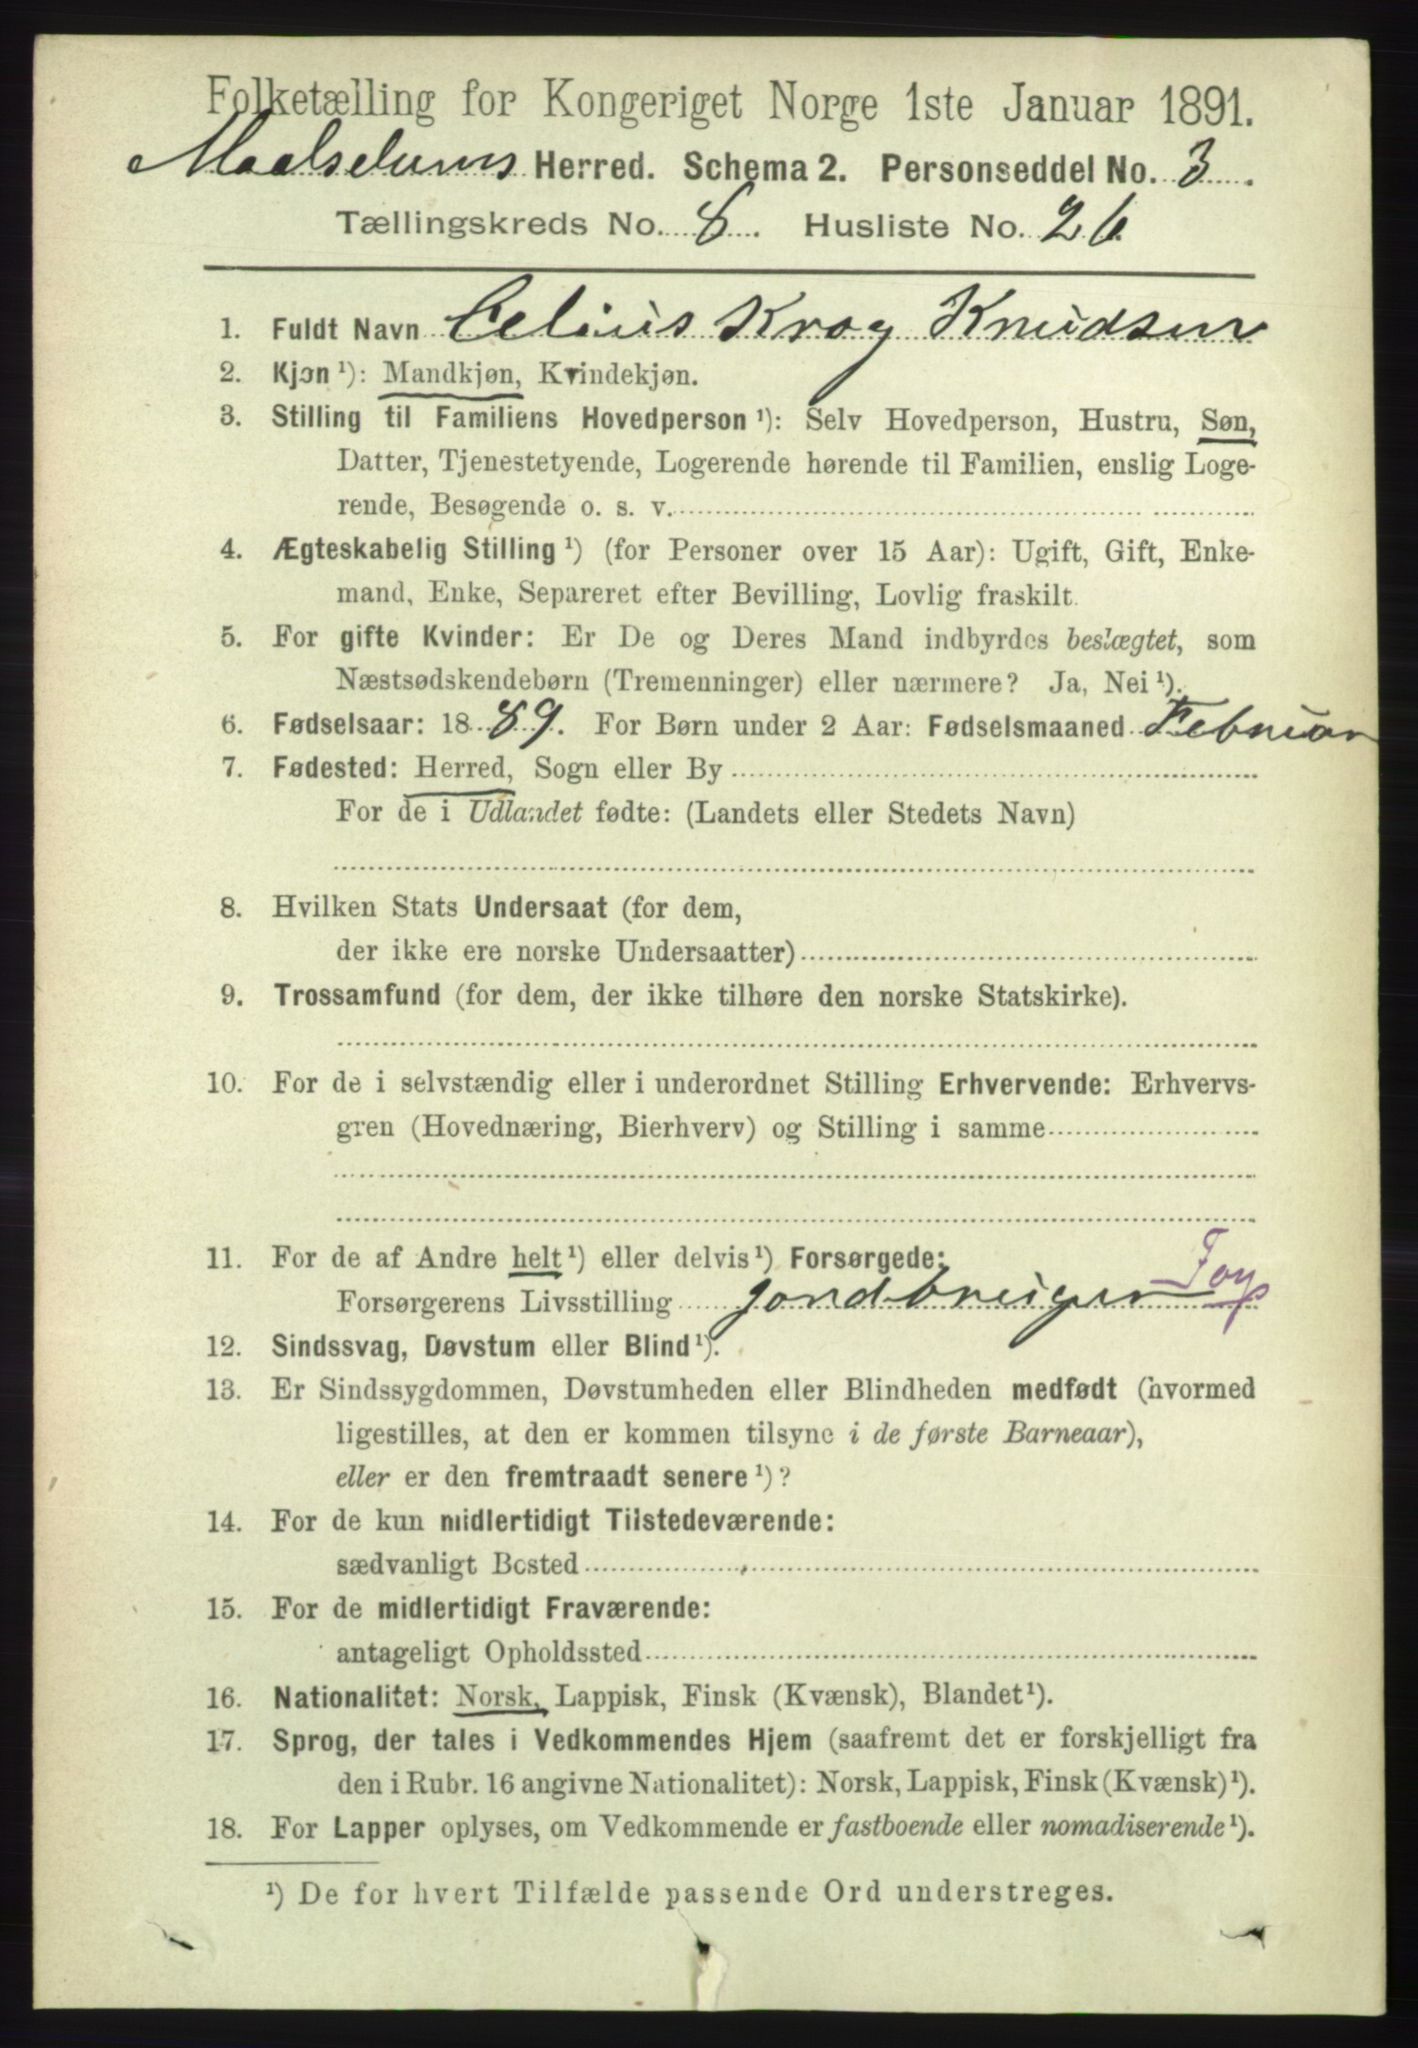 Folketælling for Kongeriget Norge 1ste Januar 1891.
Maalselvens Herred. Schema 2. Personseddel No. 3
Tællingskreds No. 8. Husliste No. 26
1. Fuldt Navn Celius Krog Knudsen
2. Kjøn ¹): Mandkjøn, Kvindekjøn.
3. Stilling til Familiens Hovedperson ¹): Selv Hovedperson, Hustru, Søn,
Datter, Tjenestetyende, Logerende hørende til Familien, enslig Loge-
rende, Besøgende o. s. v.
4. Ægteskabelig Stilling ¹) (for Personer over 15 Aar): Ugift, Gift, Enke-
mand, Enke, Separeret efter Bevilling, Lovlig fraskilt.
5. For gifte Kvinder: Er De og Deres Mand indbyrdes beslægtet, som
Næstsødskendebørn (Tremenninger) eller nærmere? Ja, Nei ¹).
6. Fødselsaar: 1889. For Børn under 2 Aar: Fødselsmaaned Februar
7. Fødested: Herred, Sogn eller By
For de i Udlandet fødte: (Landets eller Stedets Navn)
8. Hvilken Stats Undersaat (for dem,
der ikke ere norske Undersaatter)
9. Trossamfund (for dem, der ikke tilhøre den norske Statskirke).
10. For de i selvstændig eller i underordnet Stilling Erhvervende: Erhvervs-
gren (Hovednæring, Bierhverv) og Stilling i samme
11. For de af Andre helt ¹) eller delvis ¹) Forsørgede:
Forsørgerens Livsstilling gaardbruger
12. Sindssvag, Døvstum eller Blind ¹).
13. Er Sindssygdommen, Døvstumheden eller Blindheden medfødt (hvormed
ligestilles, at den er kommen tilsyne i de første Barneaar),
eller er den fremtraadt senere ¹)?
14. For de kun midlertidigt Tilstedeværende:
sædvanligt Bosted
15. For de midlertidigt Fraværende:
antageligt Opholdssted
16. Nationalitet: Norsk, Lappisk, Finsk (Kvænsk), Blandet ¹).
17. Sprog, der tales i Vedkommendes Hjem (saafremt det er forskjelligt fra
den i Rubr. 16 angivne Nationalitet): Norsk, Lappisk, Finsk (Kvænsk) ¹).
18. For Lapper oplyses, om Vedkommende er fastboende eller nomadiserende ¹).
¹) De for hvert Tilfælde passende Ord understreges.